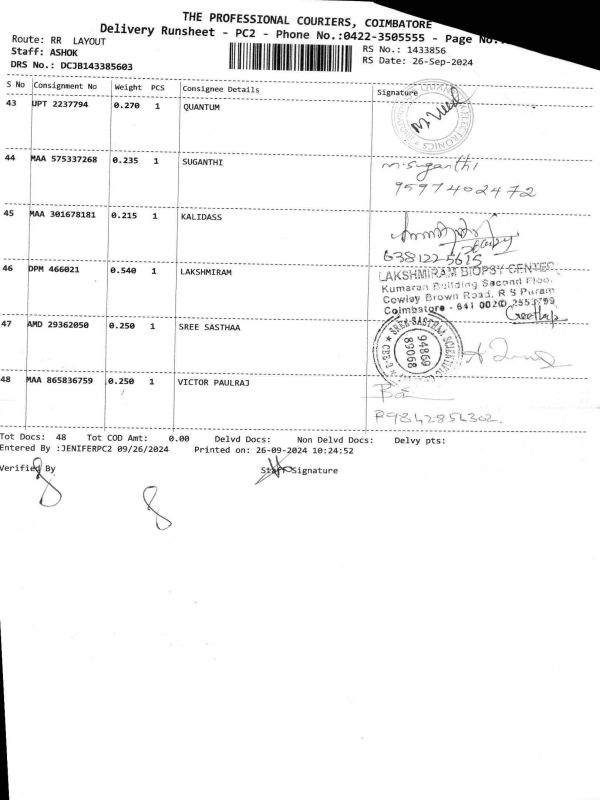 THE PROFESSIONAL COURIERS, COIMBATORE
Delivery Runsheet - PC2 - Phone No.:0422-3505555 - Page No.
Route: RR LAYOUT
Staff: ASHOK
DRS No.: DCJB143385603
RS No.: 1433856
RS Date: 26-Sep-2024
S No Consignment No Weight PCS Consignee Details Signature
43 UPT 2237794 0.270 1 QUANTUM
44 MAA 575337268 0.235 1 SUGANTHI
m.suganthi
9597402472
45 MAA 301678181 0.215 1 KALIDASS
6381225615
46 DPM 466021 0.540 1 LAKSHMIRAM
LAKSHMIRAM BIOPSY CENTER
Kumaran Building Second Floor
Cowley Brown Road, R S Puram
Coimbatore - 641 002 2553799
Geetha
47 AMD 29362050 0.250 1 SREE SASTHAA
94869
89068
48 MAA 865836759 0.250 1 VICTOR PAULRAJ
P9842856302.
Tot Docs: 48 Tot COD Amt: 0.00 Delvd Docs: Non Delvd Docs: Delvy pts:
Entered By :JENIFERPC2 09/26/2024 Printed on: 26-09-2024 10:24:52
Verified By Staff Signature